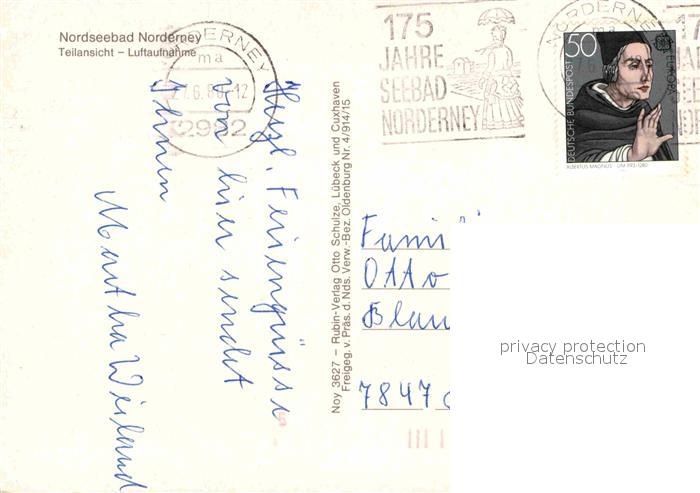 Nordseebad Norderney
Teilansicht – Luftaufnahme
NORDERNEY
ma
27.6.80-12
2982
175
JAHRE
SEEBAD
NORDERNEY
NORDERNEY
ma
50
DEUTSCHE BUNDESPOST
EUROPA
ALBERTUS MAGNUS · UM 1193-1280
Herzl. Feriengrüsse
von hier sendet
Ihnen
Martha Weiland
Noy 3627 – Rubin-Verlag Otto Schulze, Lübeck und Cuxhaven
Freigeg. v. Präs. d. Nds. Verw.-Bez. Oldenburg Nr. 4/914/15
Fami
Otto
Blau
7847
privacy protection
Datenschutz